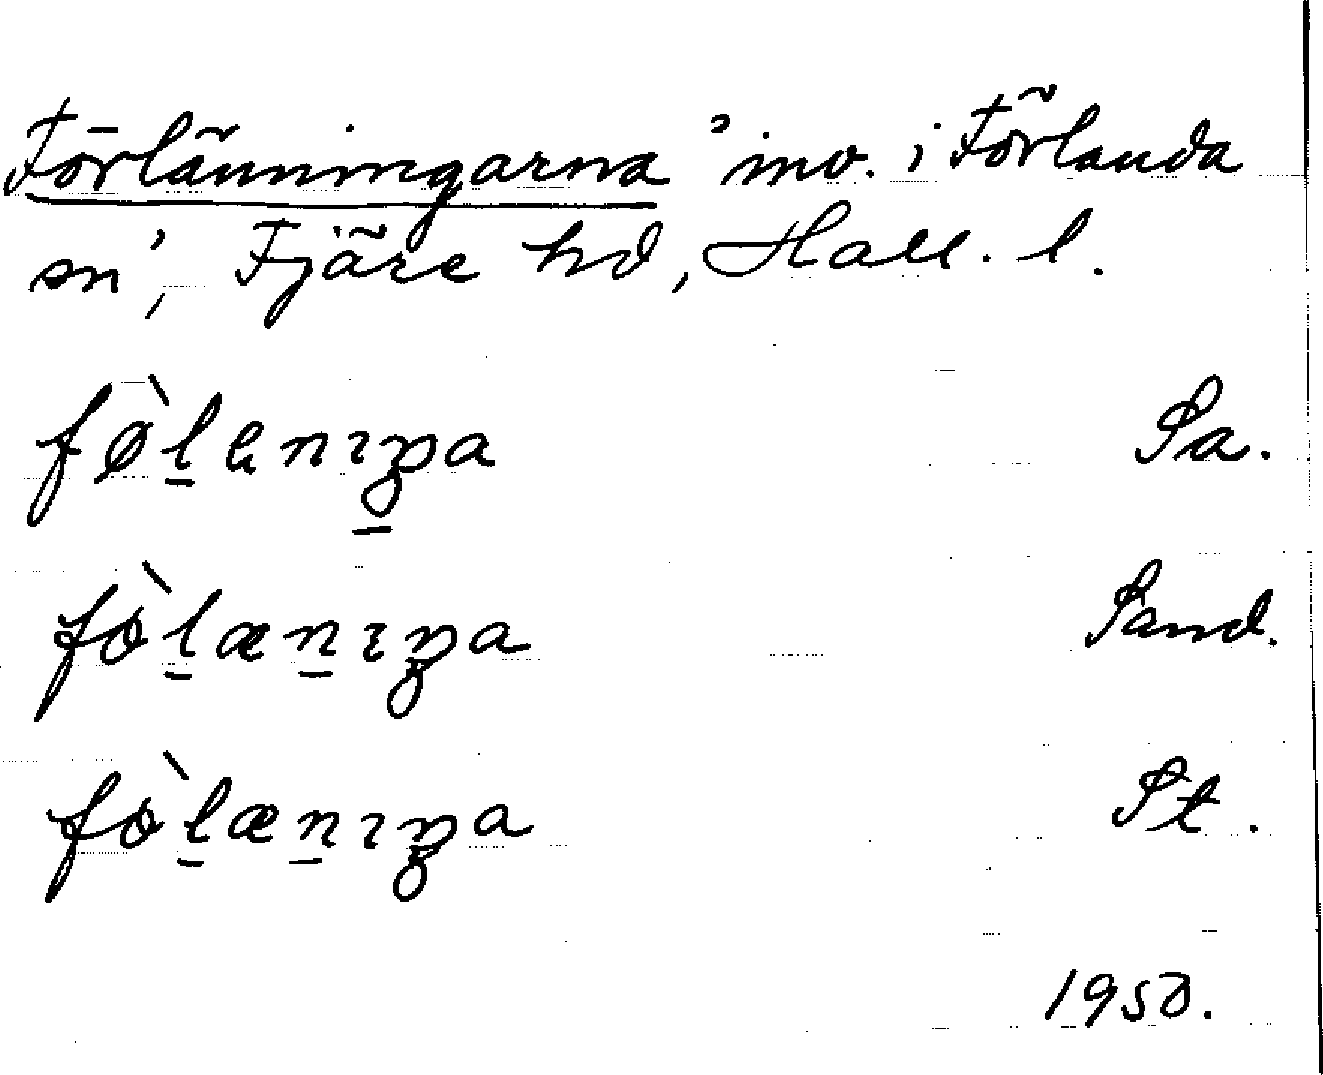 Förlänningarna 'inv. i Förlanda
sn', Fjäre hd, Hall. l.
fø̀lenıŋa Sa.
fòlænıŋa Sand.
fòlænıŋa St.
1950.